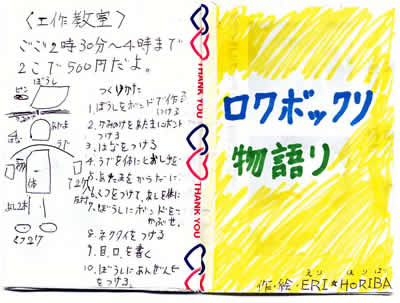 〈工作教室〉
ごご2時30分〜4時まで
2こで500円だよ。
ぼうし
つくりかた
1.ぼうしをボンドで作る
つける
2.かみのけをあたまにボンド
つける
3.はなをつける
4.うでを体に
5.
6.くつをつけて、あしを体に
7.ぼうしにボンドを
かぶせ。
8.ネクタイをつける
9.目、口を書く
10.ぼうしに
をつける。
あたま
うで
体
あし2本
くつ2つ
THANK YOU
THANK YOU
THANK YOU
ロクボックリ
物語り
えり ほりば
作・絵・ERI★HORIBA